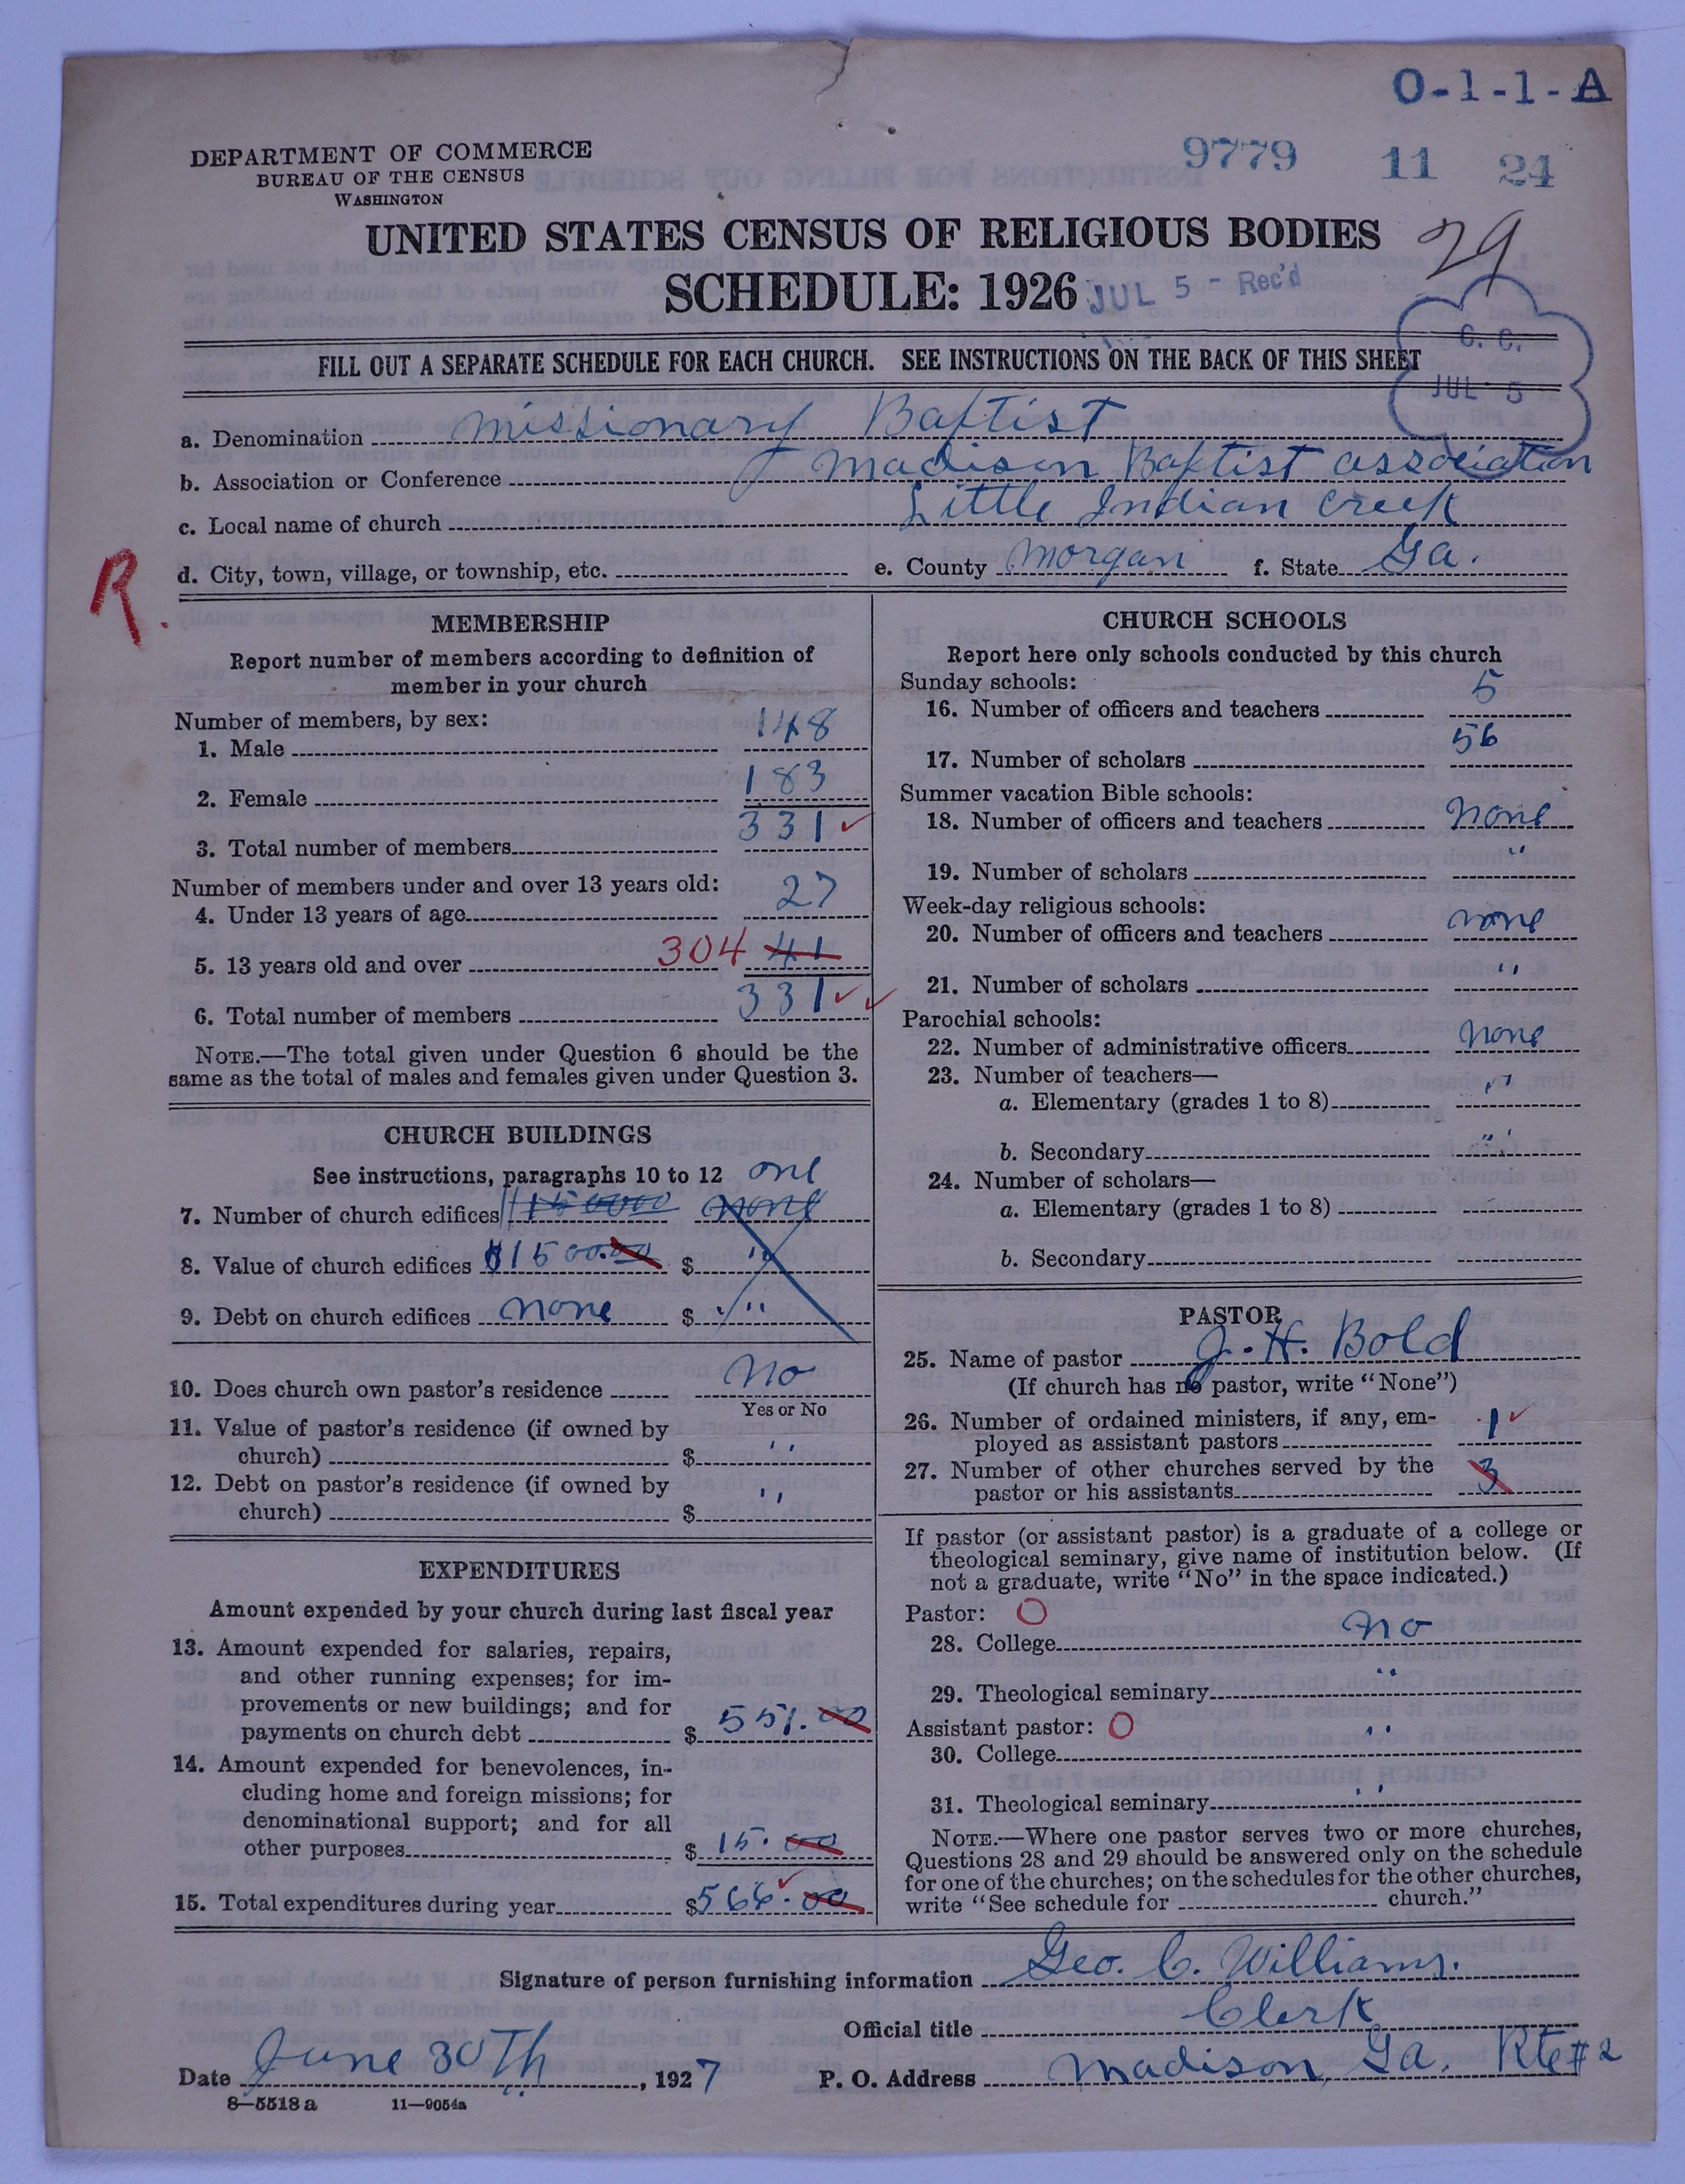 O-1-1-A
9779 11 24
DEPARTMENT OF COMMERCE
BUREAU OF THE CENSUS
WASHINGTON
29
UNITED STATES CENSUS OF RELIGIOUS BODIES
SCHEDULE: 1926
JUL 5 - Rec'd
C. C.
JUL 5
FILL OUT A SEPARATE SCHEDULE FOR EACH CHURCH. SEE INSTRUCTIONS ON THE BACK OF THIS SHEET
a. Denomination Missionary Baptist
b. Association or Conference Madison Baptist association
c. Local name of church Little Indian Creek
d. City, town, village, or township, etc. e. County Morgan f. State Ga.
R.
MEMBERSHIP
Report number of members according to definition of
member in your church
Number of members, by sex:
1. Male 148
2. Female 183
3. Total number of members 331
Number of members under and over 13 years old:
4. Under 13 years of age 27
5. 13 years old and over 304 41
6. Total number of members 331
NOTE.—The total given under Question 6 should be the
same as the total of males and females given under Question 3.
CHURCH BUILDINGS
See instructions, paragraphs 10 to 12 one
7. Number of church edifices none
8. Value of church edifices $1500.00 $ "
9. Debt on church edifices none $ "
10. Does church own pastor's residence no
Yes or No
11. Value of pastor's residence (if owned by
church) $ "
12. Debt on pastor's residence (if owned by
church) $ "
EXPENDITURES
Amount expended by your church during last fiscal year
13. Amount expended for salaries, repairs,
and other running expenses; for im-
provements or new buildings; and for
payments on church debt $ 551.00
14. Amount expended for benevolences, in-
cluding home and foreign missions; for
denominational support; and for all
other purposes $ 15.00
15. Total expenditures during year $566.00
CHURCH SCHOOLS
Report here only schools conducted by this church
Sunday schools:
16. Number of officers and teachers 5
17. Number of scholars 56
Summer vacation Bible schools:
18. Number of officers and teachers none
19. Number of scholars "
Week-day religious schools:
20. Number of officers and teachers none
21. Number of scholars "
Parochial schools:
22. Number of administrative officers none
23. Number of teachers—
a. Elementary (grades 1 to 8) "
b. Secondary "
24. Number of scholars—
a. Elementary (grades 1 to 8)
b. Secondary
PASTOR
25. Name of pastor J. H. Bold
(If church has no pastor, write "None")
26. Number of ordained ministers, if any, em-
ployed as assistant pastors 1
27. Number of other churches served by the
pastor or his assistants 3
If pastor (or assistant pastor) is a graduate of a college or
theological seminary, give name of institution below. (If
not a graduate, write "No" in the space indicated.)
Pastor: O
28. College no
29. Theological seminary "
Assistant pastor: O
30. College "
31. Theological seminary "
NOTE.—Where one pastor serves two or more churches,
Questions 28 and 29 should be answered only on the schedule
for one of the churches; on the schedules for the other churches,
write "See schedule for church."
Signature of person furnishing information Geo. C. Williams.
Official title Clerk
Date June 30Th, 1927 P. O. Address Madison, Ga. Rte #2
8—5518 a 11—9054a